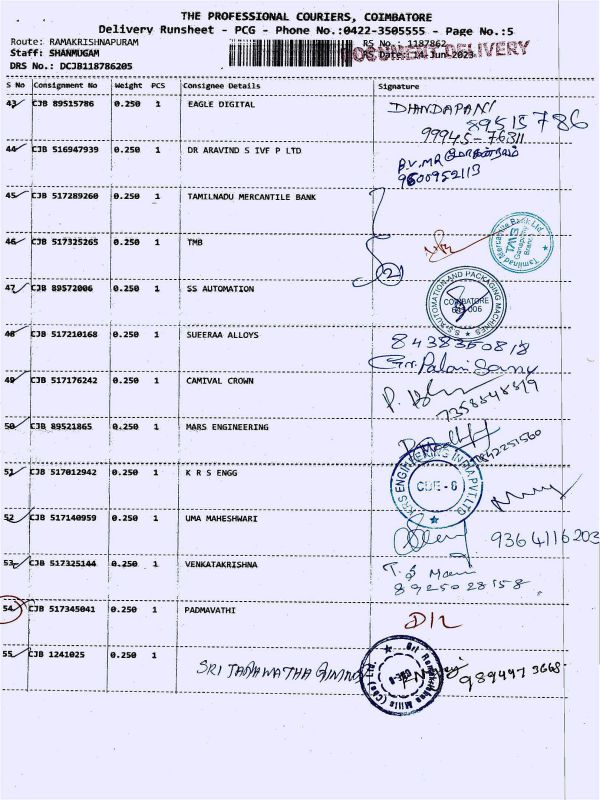 THE PROFESSIONAL COURIERS, COIMBATORE
Delivery Runsheet - PCG - Phone No.:0422-3505555 - Page No.:5
Route: RAMAKRISHNAPURAM RS No.: 1187862
DOCUMENT DELIVERY
Staff: SHANMUGAM RS Date: 14-Jun-2023
DRS No.: DCJB118786205
S No Consignment No Weight PCS Consignee Details Signature
43 CJB 89515786 0.250 1 EAGLE DIGITAL DHANDAPANI
89515786
99945-76311
44 CJB 516947939 0.250 1 DR ARAVIND S IVF P LTD
9600952113
45 CJB 517289260 0.250 1 TAMILNADU MERCANTILE BANK
46 CJB 517325265 0.250 1 TMB
(2)
Tamilnad Mercantile Bank Ltd.
TMB
Ganapathy Branch
47 CJB 89572006 0.250 1 SS AUTOMATION
S.S. AUTOMATION AND PACKAGING MACHINES
COIMBATORE
641 006
48 CJB 517210168 0.250 1 SUEERAA ALLOYS 8438350818
49 CJB 517176242 0.250 1 CAMIVAL CROWN
7358548319
50 CJB 89521865 0.250 1 MARS ENGINEERING
9842251560
51 CJB 517012942 0.250 1 K R S ENGG
KRS ENGINEERING INDIA PVT LTD
CBE - 6
52 CJB 517140959 0.250 1 UMA MAHESHWARI 9364116203
53 CJB 517325144 0.250 1 VENKATAKRISHNA T. S
8925028158
54 CJB 517345041 0.250 1 PADMAVATHI D/L
55 CJB 1241025 0.250 1
SRI
Sri Ramakrishna Mills (Cbe) Ltd.
9894973668